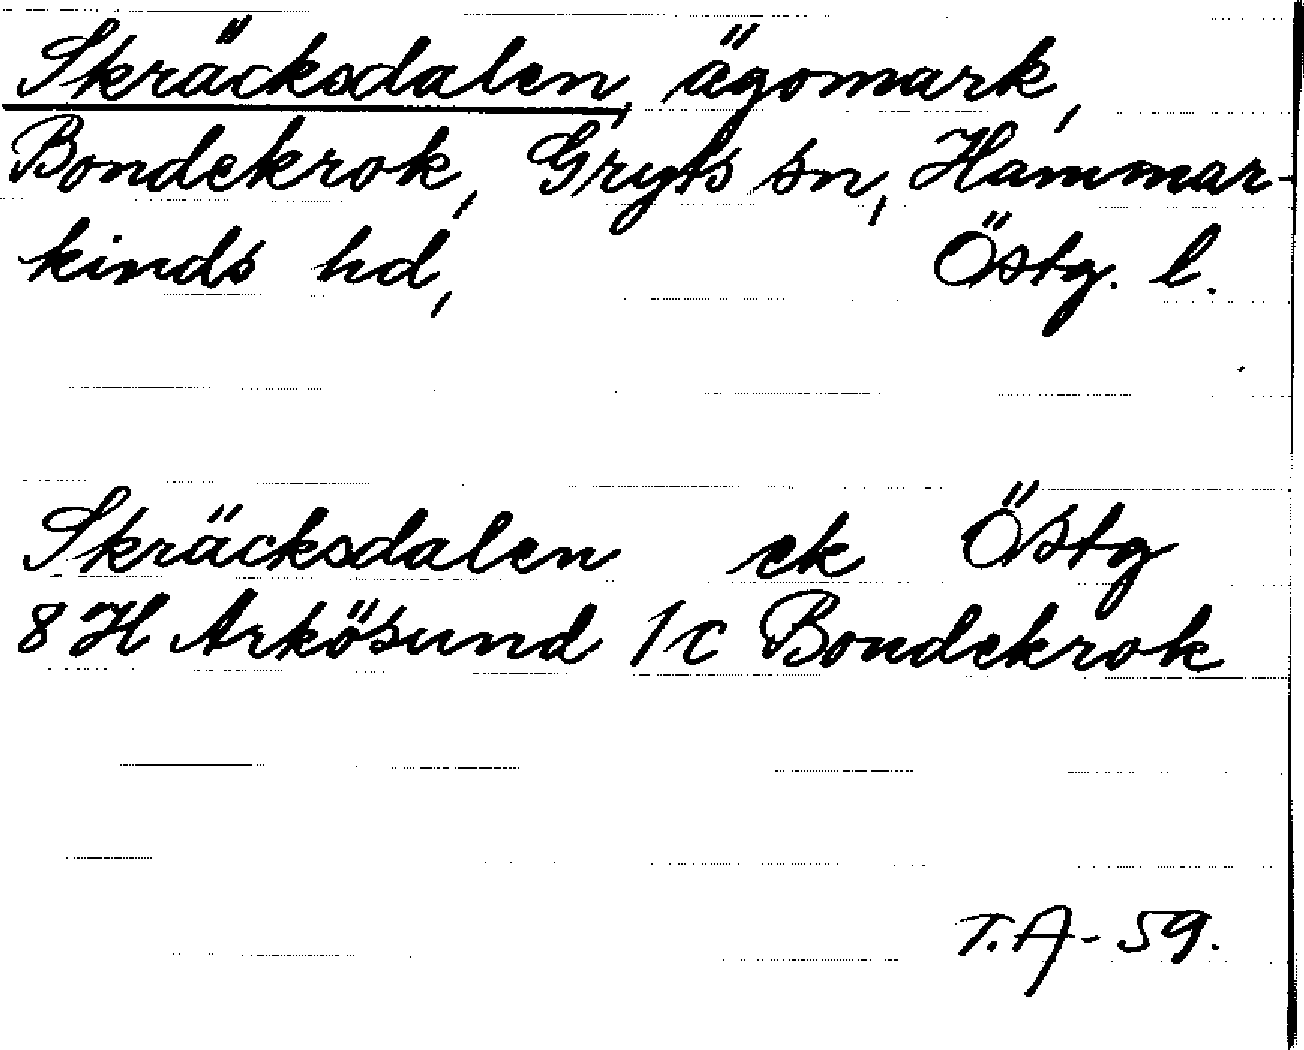 Skräcksdalen, ägomark,
Bondekrok, Gryts sn, Hammar-
kinds hd, Östg. l.
Skräcksdalen ek Östg
8 H Arkösund 1c Bondekrok
T.A-59.